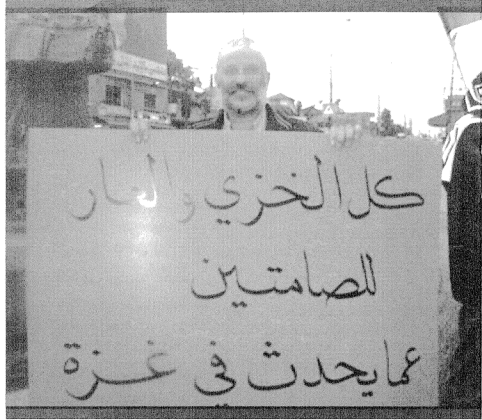 كل الخزي والعار
للصامتين
عما يحدث في غزة